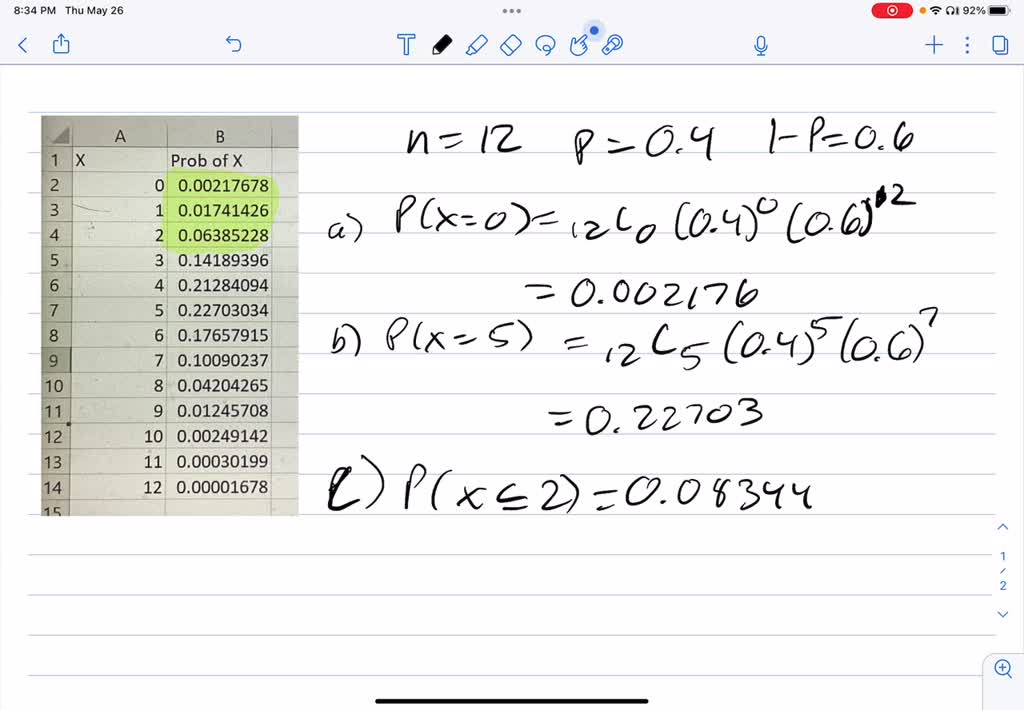 8:34 PM Thu May 26
92%
A B
1 X Prob of X
2 0 0.00217678
3 1 0.01741426
4 2 0.06385228
5 3 0.14189396
6 4 0.21284094
7 5 0.22703034
8 6 0.17657915
9 7 0.10090237
10 8 0.04204265
11 9 0.01245708
12 10 0.00249142
13 11 0.00030199
14 12 0.00001678
15
n = 12 P = 0.4 1-P = 0.6
a) P(x=0) = ₁₂C₀ (0.4)⁰ (0.6)¹²
= 0.002176
b) P(x=5) = ₁₂C₅ (0.4)⁵ (0.6)⁷
= 0.22703
c) P(x≤2) = 0.08344
1
/
2